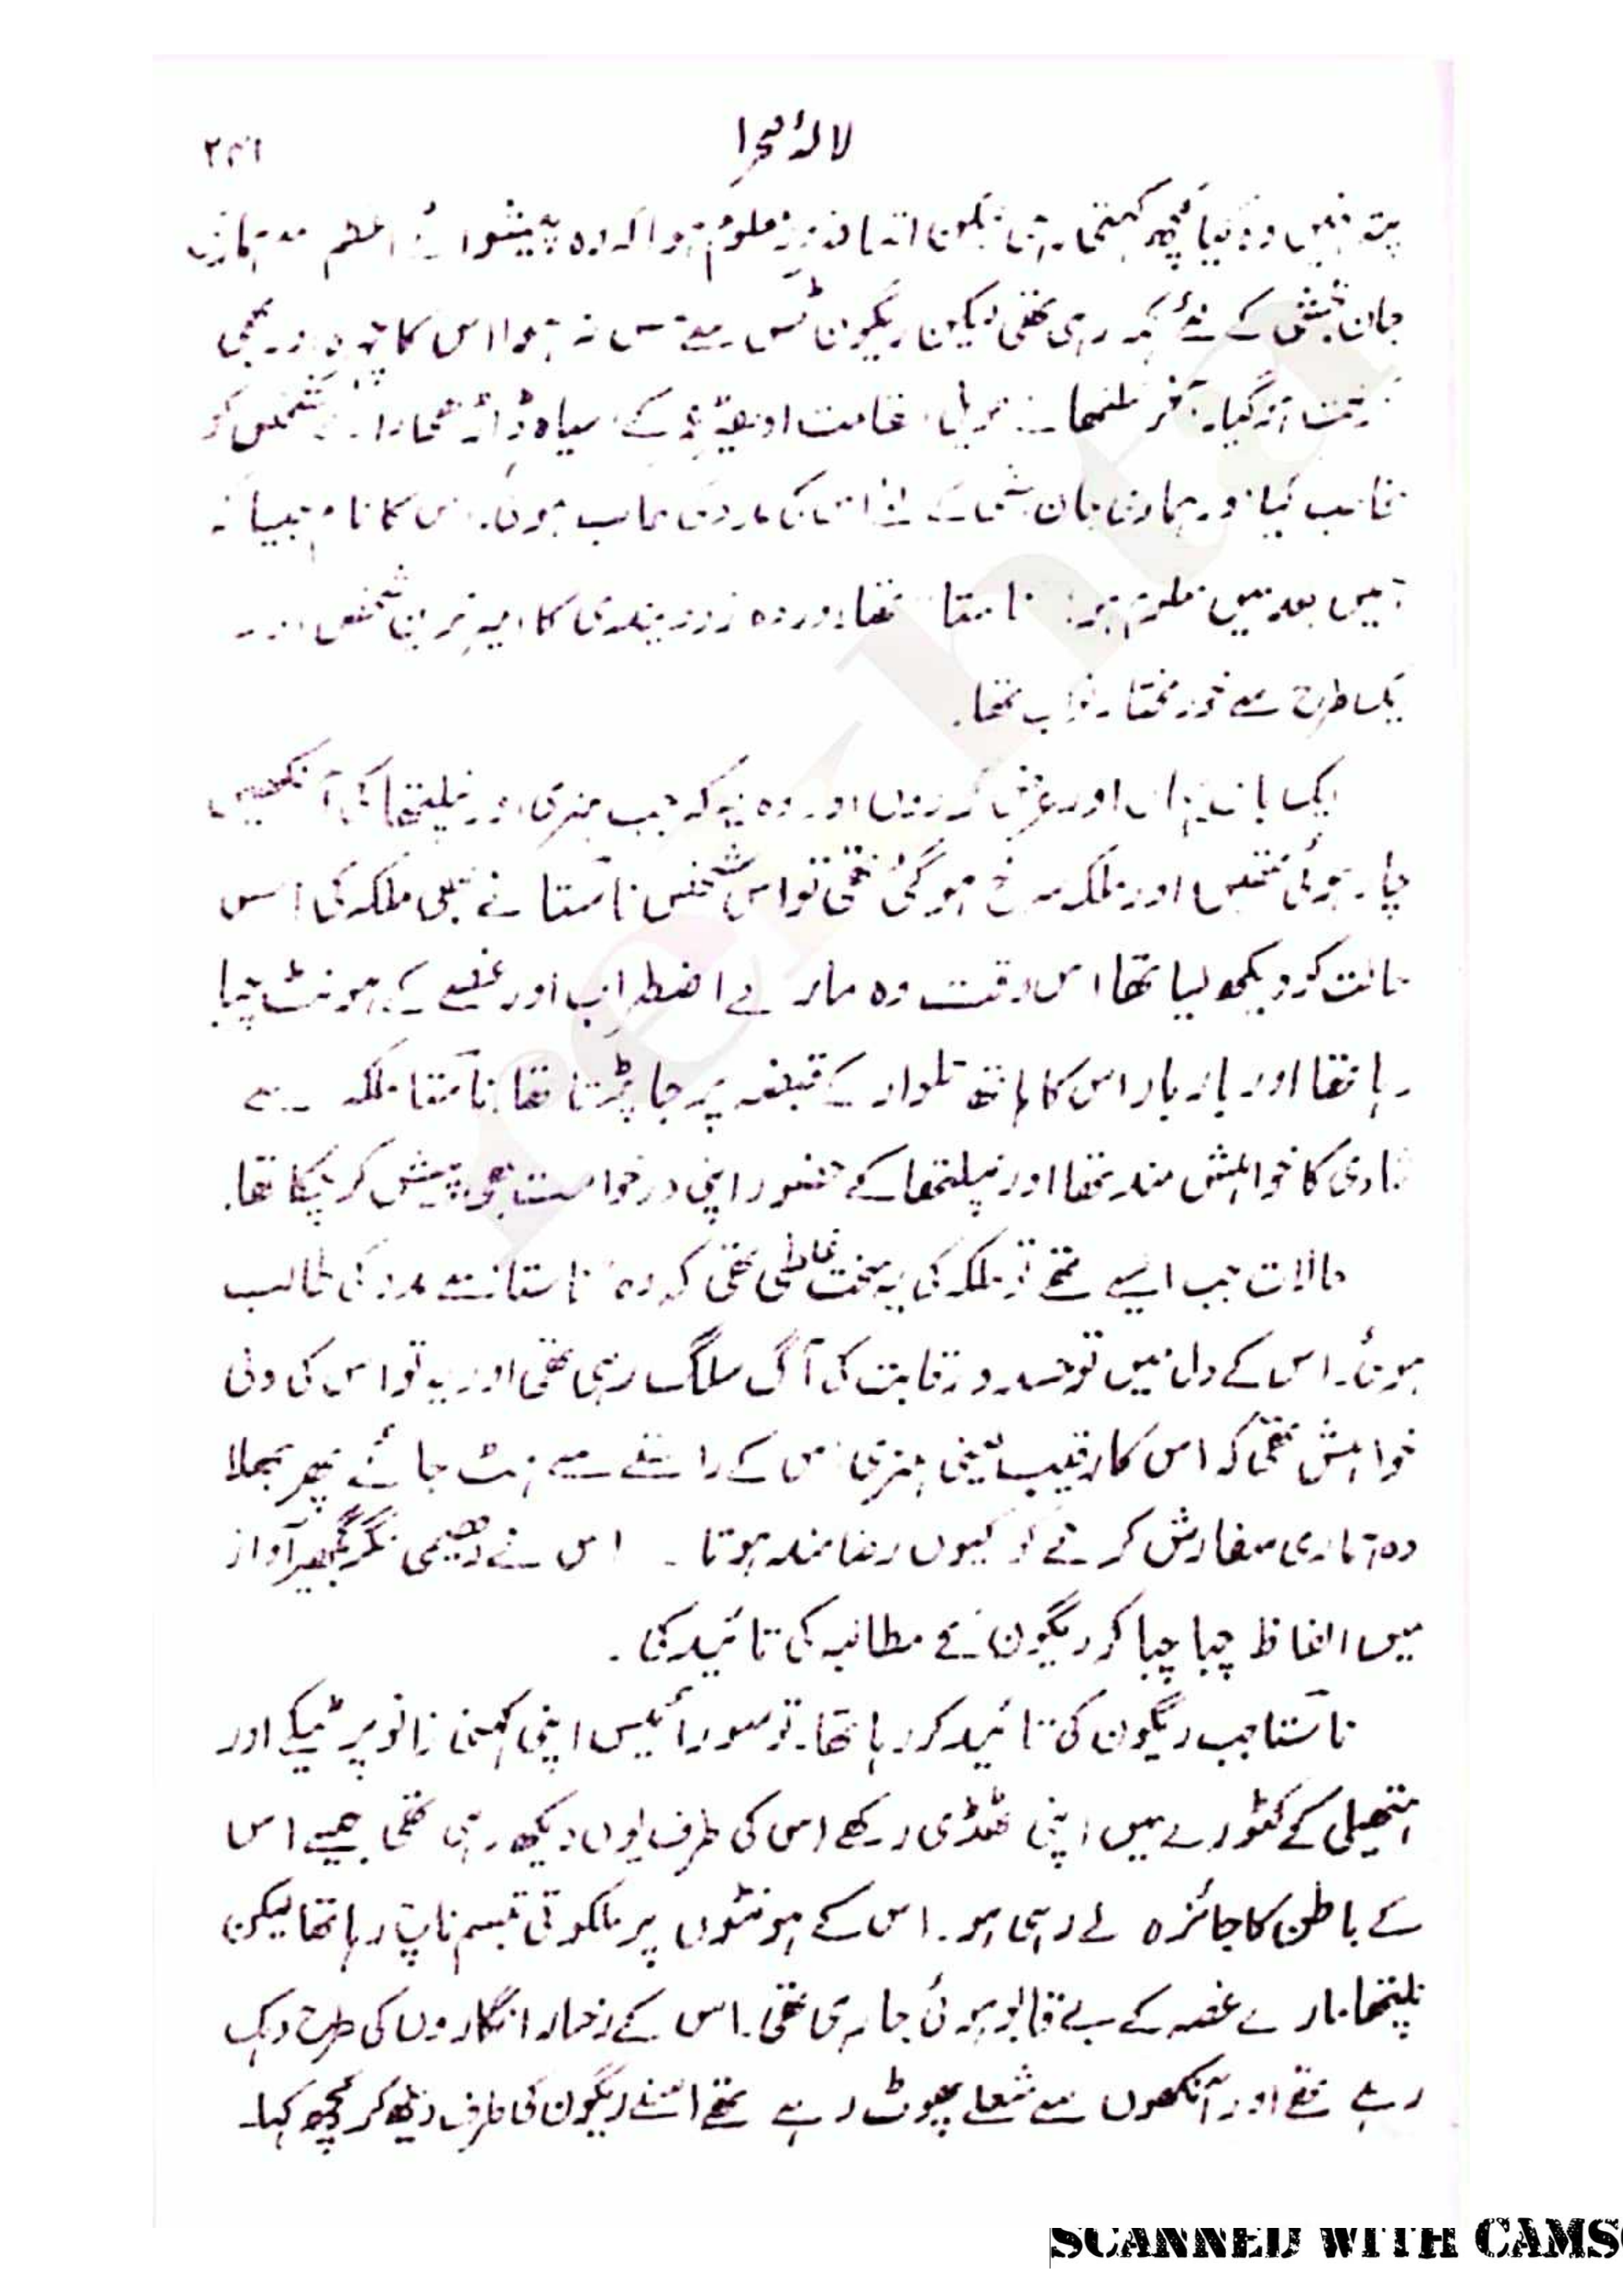 لالۂ صحرا
۲۴۱
پتہ نہیں وہ کیا کچھ کہتی رہی لیکن اتنا ضرور معلوم ہوا کہ وہ پیشوائے اعظم سے ہماری
جان بخشی کے لئے کہہ رہی تھی لیکن ریگون ٹس سے مس نہ ہوا اس کا چہرہ اور بھی
کرخت ہو گیا۔ آخر نلیتھا نے طویل قامت ادھیڑ عمر کے سیاہ ڈاڑھی والے شخص کو
مخاطب کیا اور ہماری جان بخشی کے لئے اس کی مدد کی طالب ہوئی۔ اس کا نام جیسا کہ
ہمیں بعد میں معلوم ہوا ناستا تھا اور وہ زوزیندی کا امیر ترین شخص اور
ایک طرح سے خود مختار نواب تھا۔
ایک بات یہاں اور عرض کر دوں اور وہ یہ کہ جب ہنری اور نلیتھا کی آنکھیں
چار ہوئی تھیں اور ملکہ سرخ ہو گئی تھی تو اس شخص ناستا نے بھی ملکہ کی اس
حالت کو دیکھ لیا تھا اس وقت وہ مارے اضطراب اور غصے کے ہونٹ چبا
رہا تھا اور بار بار اس کا ہاتھ تلوار کے قبضہ پر جا پڑتا تھا ناستا ملکہ سے
شادی کا خواہش مند تھا اور نیلتھا کے حضور اپنی درخواست بھی پیش کر چکا تھا۔
حالات جب ایسے تھے تو ملکہ کی یہ سخت غلطی تھی کہ وہ ناستا سے مدد کی طالب
ہوئی۔ اس کے دل میں تو حسد و رقابت کی آگ سلگ رہی تھی اور یہ تو اس کی دلی
خواہش تھی کہ اس کا رقیب یعنی ہنری اس کے راستے سے ہٹ جائے پھر بھلا
وہ ہماری سفارش کرنے کو کیوں رضامند ہوتا۔ اس نے دھیمی مگر گمبھیر آواز
میں الفاظ چبا چبا کر ریگون کے مطالبہ کی تائید کی۔
ناستا جب ریگون کی تائید کر رہا تھا۔ تو سورائیس اپنی کہنی زانو پر ٹیکے اور
ہتھیلی کے کٹورے میں اپنی ٹھڈی رکھے اس کی طرف یوں دیکھ رہی تھی جیسے اس
کے باطن کا جائزہ لے رہی ہو۔ اس کے ہونٹوں پر ملکوتی تبسم ناچ رہا تھا لیکن
نلیتھا مارے غصہ کے بے قابو ہوئی جا رہی تھی۔ اس کے رخسار انگاروں کی طرح دہک
رہے تھے اور آنکھوں سے شعلے پھوٹ رہے تھے اس نے ریگون کی طرف دیکھ کر کچھ کہا۔
SCANNED WITH CAMS